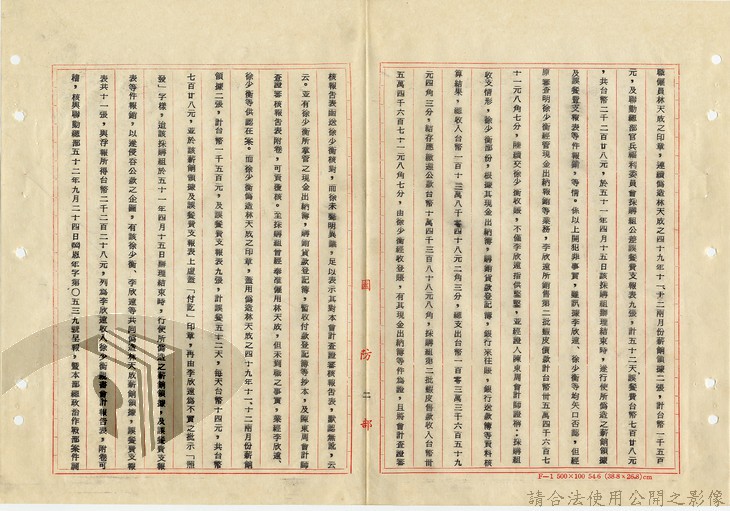 職僱員林天成之印章，連續偽造林天成之四十九年十一、十二兩月份薪餉領據二張，計台幣一千五百
元，及聯勤總部官兵福利委員會採購組公差誤餐費支報表九張，計五十二天，誤餐費台幣七百廿八元
，共台幣二千二百廿八元，於五十一年四月十五日該採購組辦理結束時，遂行使所偽造之薪餉領據
及誤餐費支報表等件報銷，等情。係以上開犯罪事實，雖訊據李欣遠、徐少衡等均矢口否認，但經
原審查明徐少衡經管現金出納報銷等業務，李欣遠所銷售第二批蝦皮價款計台幣卅五萬四千六百七
十一元八角七分，陸續交徐少衡收賬，不僅李欣遠指供鑿鑿，並經證人陳東周會計師證稱，採購組
收支情形，徐少衡部份，根據其現金出納簿，購銷貨款登記簿，銀行來往賬，銀行送款簿等資料核
算結果，總收入台幣一百十三萬八千零四十八元二角三分，總支出台幣一百零三萬三千六百五十九
元四角三分，結存應繳還公款台幣十萬四千三百八十八元八角，採購組第二批蝦皮售款收入台幣卅
五萬四千六百七十一元八角七分，由徐少衡經收登賬，有其現金出納簿等件為證，且將會計查證審
核報告表函送徐少衡核對，而徐未聲明異議，足以表示其對本會計查證審核報告表，默認無訛，云
云。並有徐少衡所掌管之現金出納簿，購銷貨款登記簿，暫收付款登記簿等抄本，及陳東周會計師
查證審核報告表附卷，可資覆核。至採購組曾經奉准僱用林天成，但未到職之事實，業經李欣遠、
徐少衡等供認在案。而徐少衡偽造林天成之印章，蓋用偽造林天成之四十九年十一、十二兩月份薪餉
領據二張，計台幣一千五百元，及誤餐費支報表九張，計誤餐五十二天，每天台幣十四元，共台幣
七百廿八元，並於該薪餉領據及誤餐費支報表上虛蓋「付訖」印章，再由李欣遠為不實之批示「照
發」字樣，迨該採購組於五十一年四月十五日辦理結束時，行使所偽造之薪餉領據，及誤餐費支報
表等件報銷，以遂侵吞公款之企圖，有該徐少衡、李欣遠等共同偽造林天成薪餉領據，誤餐費支報
表共十一張，與浮報所得台幣二千二百二十八元，列為李欣遠收入徐少衡經書會計報告表，附卷可
稽，核與聯勤總部五十二年九月二十四日闊恩年字第〇五三九號呈報，暨本部總政治作戰部案件調
國防二部
F—1 500×100 54.6 (38.8×26.8)cm
請合法使用公開之影像